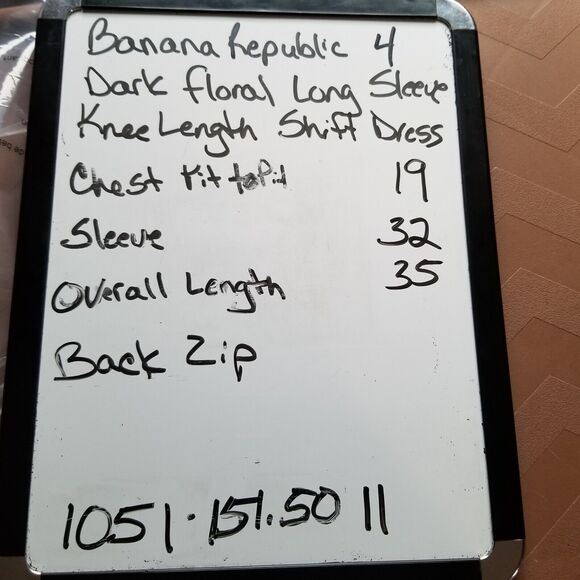 Banana Republic 4
Dark floral Long Sleeve
Knee Length Shift Dress
Chest Pit to Pit 19
Sleeve 32
Overall Length 35
Back Zip
1051·151.50 11